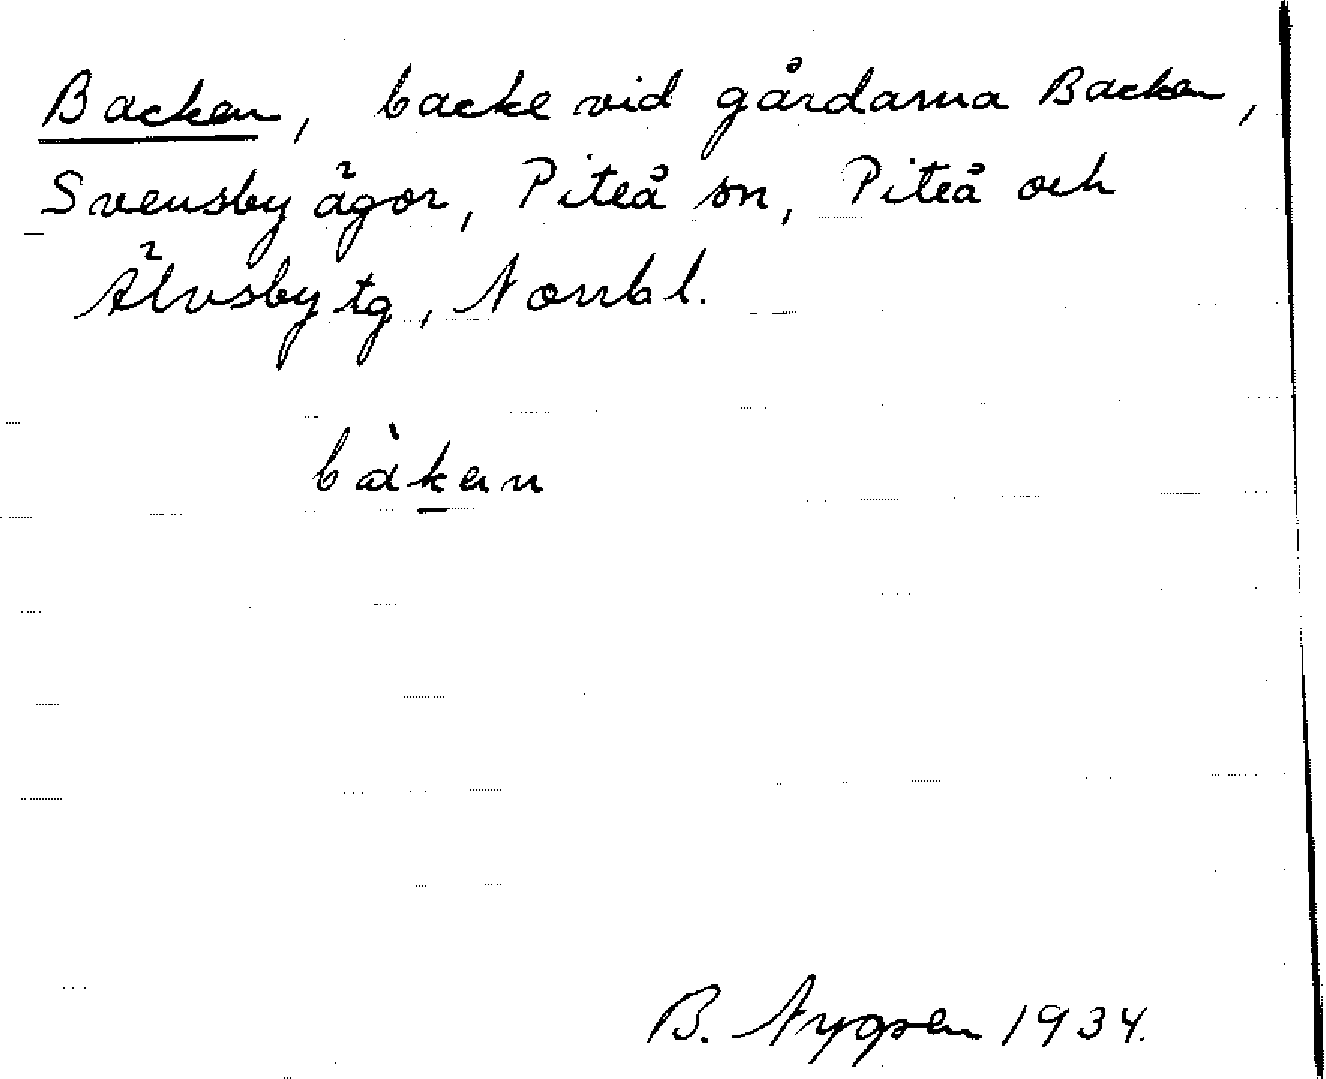 Backen, backe vid gårdarna Backen,
Svensby ägor, Piteå sn, Piteå och
Älvsby tg, Norrb l.
bàken
B. Nygren 1934.